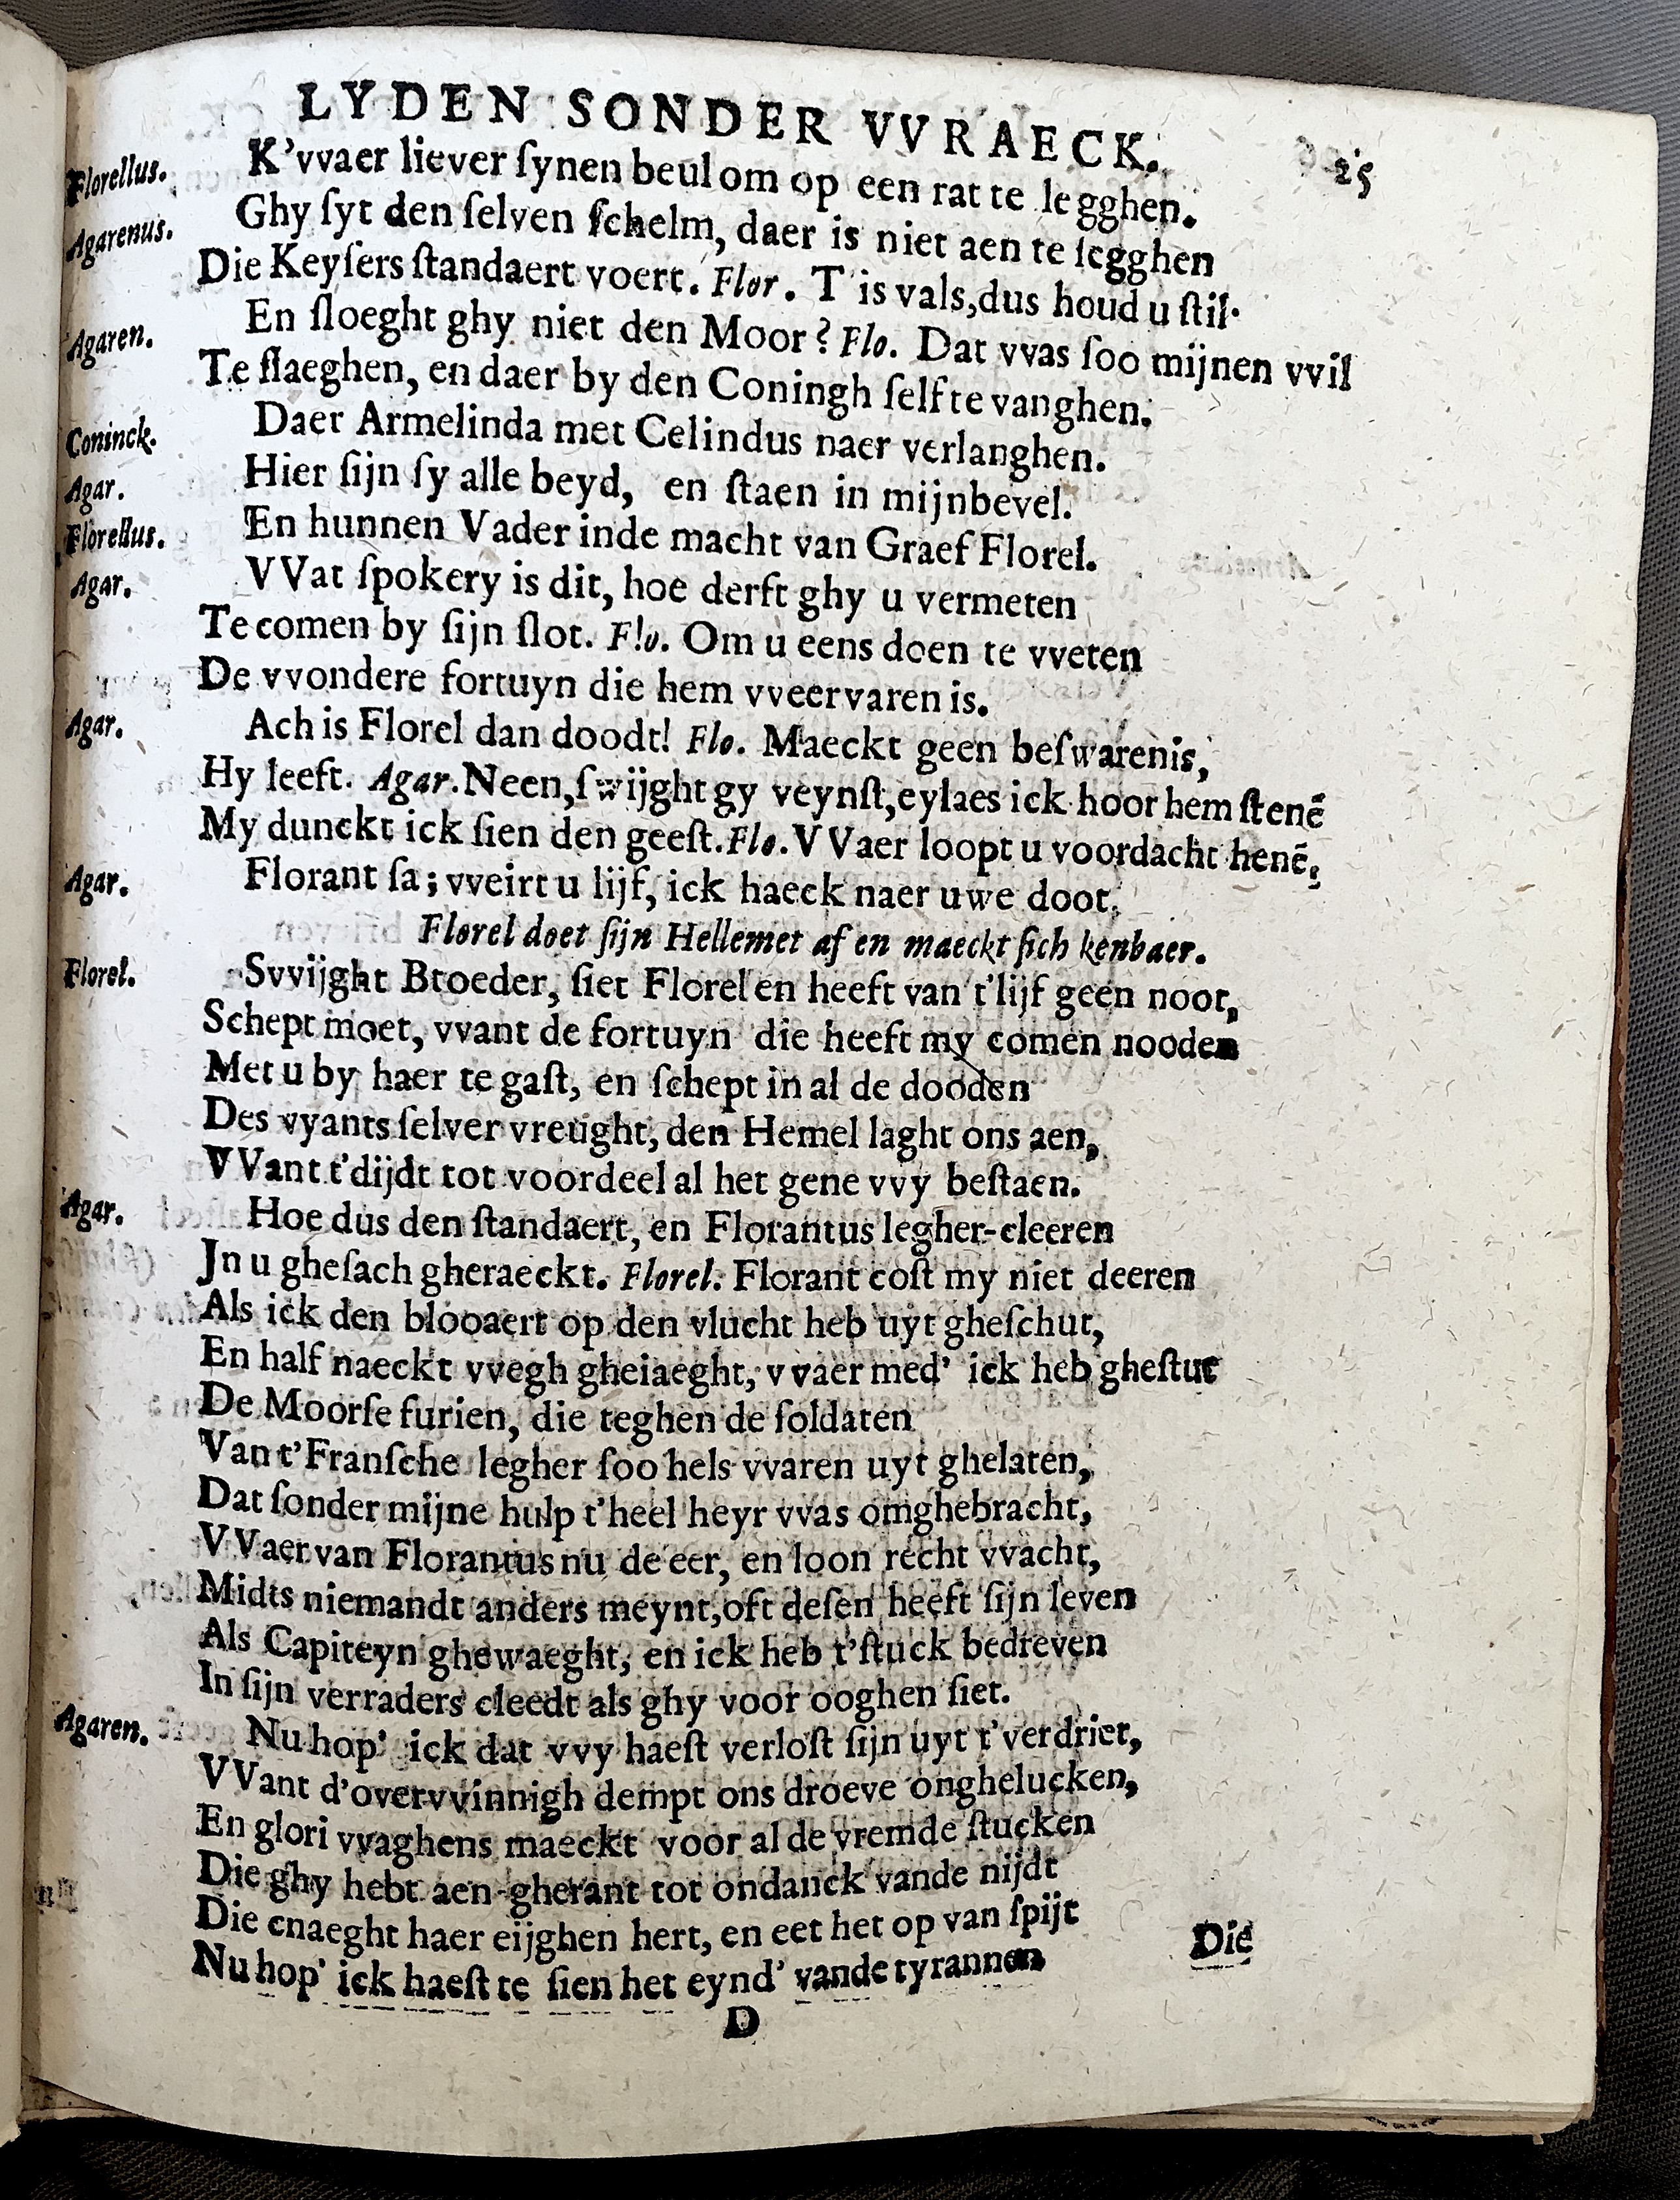 LYDEN SONDER VVRAECK. 25
Florellus. K'vvaer liever ſynen beul om op een rat te legghen.
Agarenus. Ghy ſyt den ſelven ſchelm, daer is niet aen te ſegghen
Die Keyſers ſtandaert voert. Flor. T'is vals, dus houd u ſtil.
Agaren. En ſloeght ghy niet den Moor? Flo. Dat vvas ſoo mijnen vvil
Te ſlaeghen, en daer by den Coningh ſelf te vanghen.
Coninck. Daer Armelinda met Celindus naer verlanghen.
Agar. Hier ſijn ſy alle beyd, en ſtaen in mijn bevel.
Florellus. En hunnen Vader inde macht van Graef Florel.
Agar. VVat ſpokery is dit, hoe derft ghy u vermeten
Te comen by ſijn ſlot. Flo. Om u eens doen te vveten
De vvondere fortuyn die hem vveervaren is.
Agar. Ach is Florel dan doodt! Flo. Maeckt geen beſwarenis,
Hy leeft. Agar. Neen, ſwijght gy veynſt, eylaes ick hoor hem ſtenē
My dunckt ick ſien den geeſt. Flo. VVaer loopt u voordacht henē,
Agar. Florant ſa; vveirt u lijf, ick haeck naer uwe doot.
Florel doet ſijn Hellemet af en maeckt ſich kenbaer.
Florel. Svvijght Broeder, ſiet Florel en heeft van t'lijf geen noot,
Schept moet, vvant de fortuyn die heeft my comen nooden
Met u by haer te gaſt, en ſchept in al de dooden
Des vyants ſelver vreught, den Hemel laght ons aen,
VVant t'dijdt tot voordeel al het gene vvy beſtaen.
Agar. Hoe dus den ſtandaert, en Florantus legher-cleeren
Jn u gheſach gheraeckt. Florel. Florant coſt my niet deeren
Als ick den blooaert op den vlucht heb uyt gheſchut,
En half naeckt vvegh gheiaeght, vvaer med' ick heb gheſtut
De Moorſe furien, die teghen de ſoldaten
Van t'Franſche legher ſoo hels vvaren uyt ghelaten,
Dat ſonder mijne hulp t'heel heyr vvas omghebracht,
VVaer van Florantus nu de eer, en loon recht vvacht,
Midts niemandt anders meynt, oft deſen heeft ſijn leven
Als Capiteyn ghewaeght, en ick heb t'ſtuck bedreven
In ſijn verraders cleedt als ghy voor ooghen ſiet.
Agaren. Nu hop' ick dat vvy haeſt verloſt ſijn uyt t'verdriet,
VVant d'overvvinnigh dempt ons droeve onghelucken,
En glori vvaghens maeckt voor al de vremde ſtucken
Die ghy hebt aen-gherant tot ondanck vande nijdt
Die cnaeght haer eijghen hert, en eet het op van ſpijt
Nu hop' ick haeſt te ſien het eynd' vande tyrannen
D Die